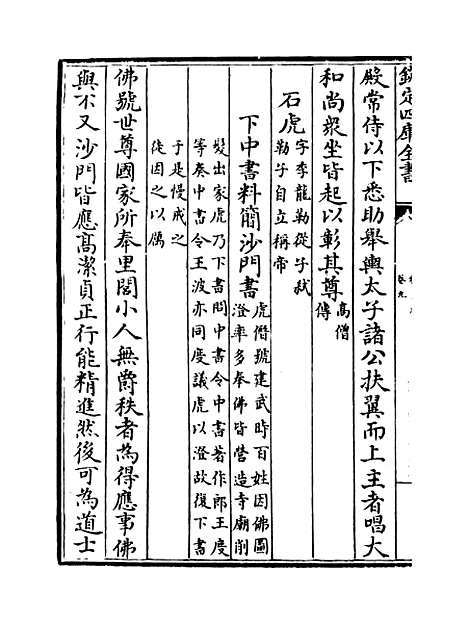 欽定四庫全書
卷九
殿常侍以下悉助舉輿太子諸公扶翼而上主者唱大
和尚衆坐皆起以彰其尊高僧
傳
石虎字季龍勒從子弑
勒子自立稱帝
下中書料簡沙門書虎僭號建武時百姓因佛圖
澄率多奉佛皆營造寺廟削
髮出家虎乃下書問中書令中書著作郎王度
等奏中書令王波亦同度議虎以澄故復下書
于是慢戒之
徒因之以厲
佛號世尊國家所奉里閭小人無爵秩者為得應事佛
與不又沙門皆應高潔貞正行能精進然後可為道士